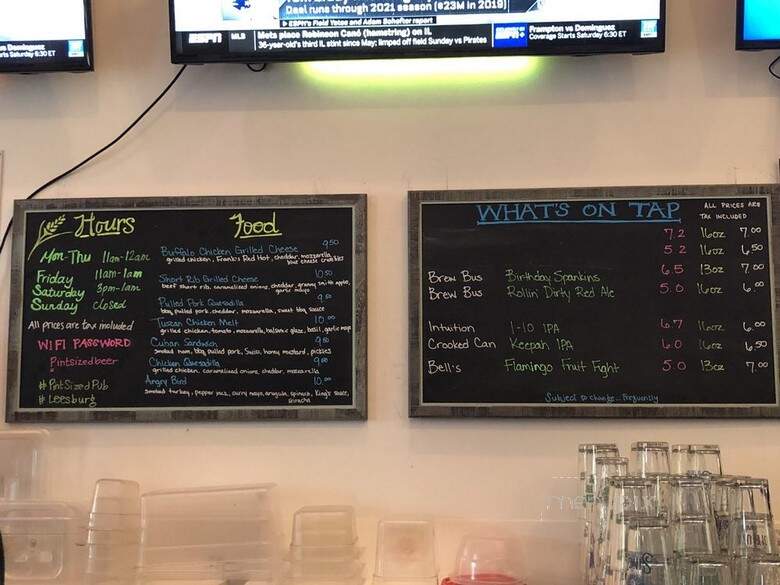 Deal runs through 2021 season (≈$23M in 2019)
ESPN's Field Yates and Adam Schefter report
ESPN MLB Mets place Robinson Canó (hamstring) on IL
36-year-old's third IL stint since May; limped off field Sunday vs Pirates
ESPN+ Frampton vs Dominguez
Coverage Starts Saturday 6:30 ET
vs Dominguez
Starts Saturday 6:30 ET
Hours
Mon-Thu 11am-12am
Friday 11am-1am
Saturday 3pm-1am
Sunday closed
All prices are tax included
WIFI PASSWORD
Pintsizedbeer
#PintSizedPub
#Leesburg
Food
Buffalo Chicken Grilled Cheese 9.50
grilled chicken, Frank's Red Hot, cheddar, mozzarella,
blue cheese crumbles
Short Rib Grilled Cheese 10.50
beef short rib, caramelized onions, cheddar, granny smith apple,
garlic mayo
Pulled Pork Quesadilla 9.00
bbq pulled pork, cheddar, mozzarella, sweet bbq sauce
Tuscan Chicken Melt 10.00
grilled chicken, tomato, mozzarella, balsamic glaze, basil, garlic mayo
Cuban Sandwich 9.00
smoked ham, bbq pulled pork, Swiss, honey mustard, pickles
Chicken Quesadilla 9.00
grilled chicken, caramelized onions, cheddar, mozzarella
Angry Bird 10.00
Smoked turkey, pepper jack, curry mayo, arugula, spinach, King's sauce,
sriracha
WHAT'S ON TAP
ALL PRICES ARE
TAX INCLUDED
7.2 16oz 7.00
5.2 16oz 6.50
6.5 13oz 7.00
Brew Bus Birthday Spankins
Brew Bus Rollin Dirty Red Ale 5.0 16oz 6.00
Intuition I-10 IPA 6.7 16oz 6.00
Crooked Can Keepah IPA 6.0 16oz 6.50
Bell's Flamingo Fruit Fight 5.0 13oz 7.00
Subject to change... frequently